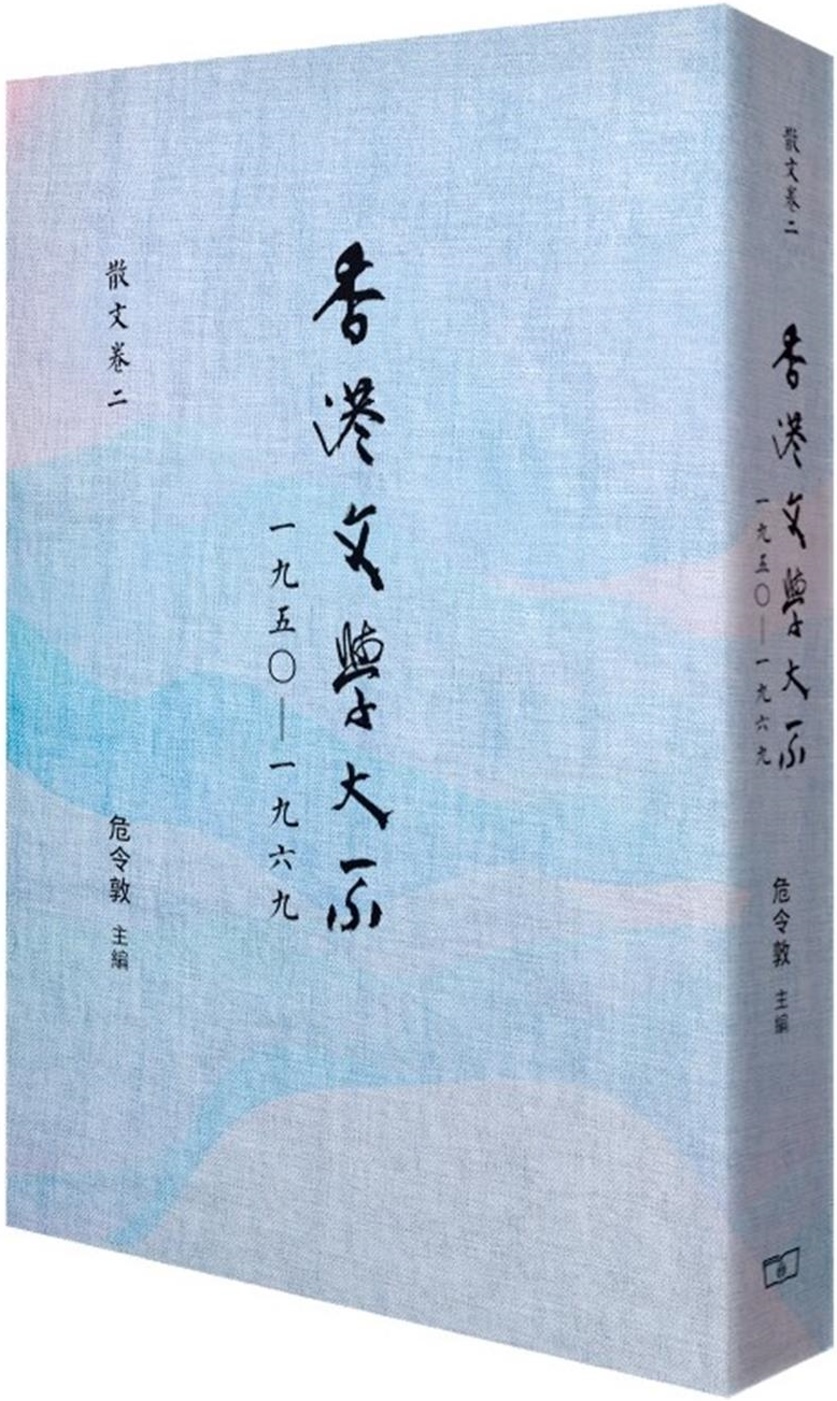 香港文學大系
一九五〇—一九六九
散文卷二
危令敦 主編
散文卷二
香港文學大系
一九五〇—一九六九
危令敦 主編